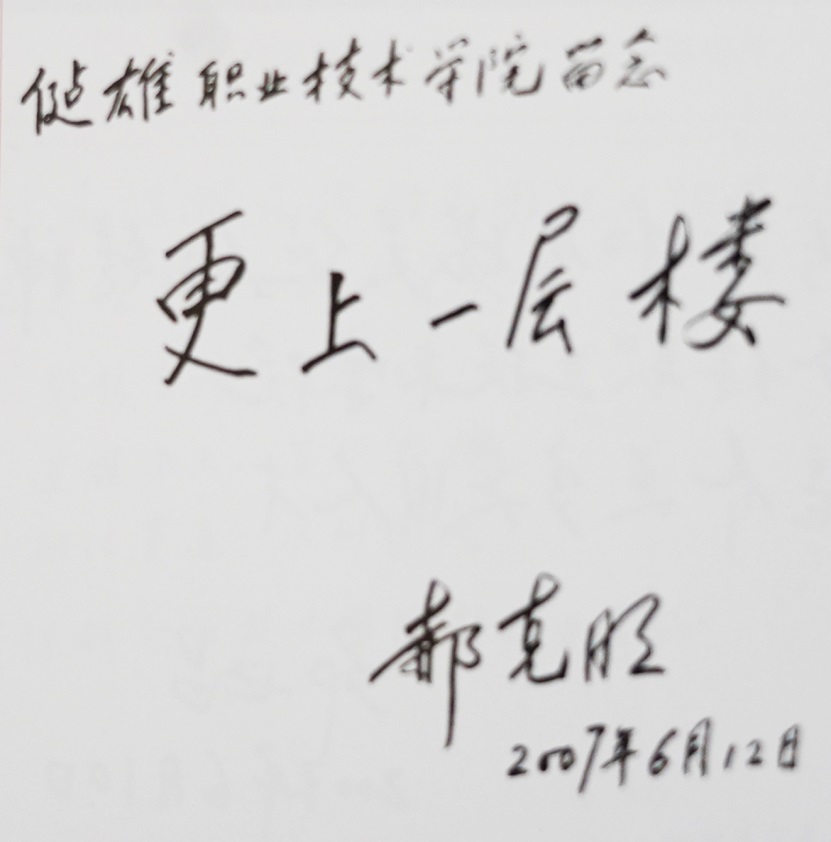 健雄职业技术学院留念
更上一层楼
郝克明
2007年6月12日